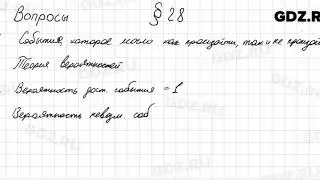 Вопросы § 28 GDZ.RU
Событие, которое могло как произойти, так и не произой
Теория вероятностей
Вероятность дост. события = 1
Вероятность невозм. соб